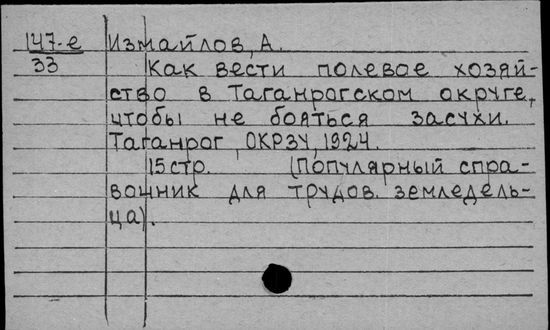 147-е Измайлов, А.
33 Как вести полевое хозяй-
ство в Таганрогском округе,
чтобы не бояться засухи.
Таганрог, ОКРЗУ, 1924.
15 стр. (Популярный спра-
вочник для трудов. земледель-
ца).